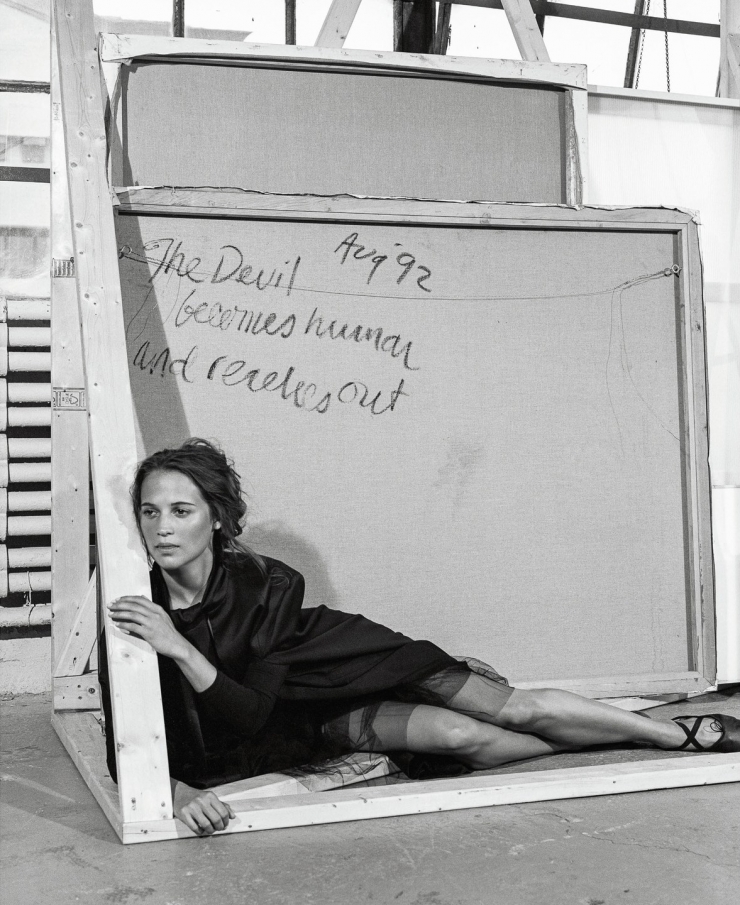 The Devil
Aug '92
becomes human
and reaches out